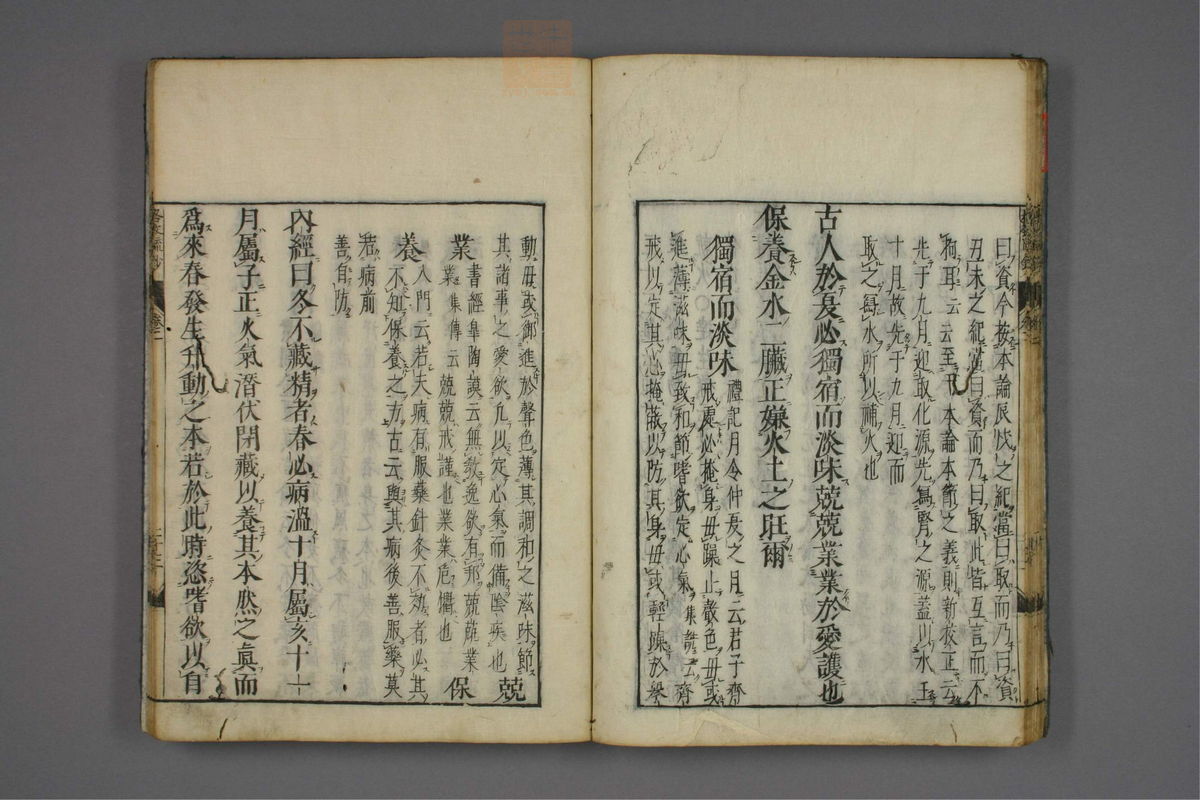 曰資今按本論辰戌之紀當曰取而乃曰資
丑未之紀當曰資而乃曰取此皆互言而不
拘耳云云至于本論本節之義則新校正云
先于九月迎取化源先爲腎之源蓋以水王
十月故先于九月迎而
取之㵼水所以補火也
古人於夏必獨宿而淡味兢兢業業於愛護也
保養金水二臟正嫌火土之旺爾
獨宿而淡味
禮記月令仲夏之月云君子齊
戒處必掩身毋躁止聲色毋或
進薄滋味毋致和節嗜欲定心氣集說云齊
戒以定其心掩蔽以防其身毋或輕躁於舉
動毋或御進於聲色薄其調和之滋味節
其諸事之愛欲凡以定心氣而備陰疾也
兢
業
書經皐陶謨云無教逸欲有邦兢兢業
業集傳云兢兢戒謹也業業危懼也
保
養
入門云若夫病有服藥針灸不效者必其
不知保養之方古云與其病後善服藥莫
若病前
善自防
內經曰冬不藏精者春必病溫十月屬亥十一
月屬子正火氣潛伏閉藏以養其本然之眞而
爲來春發生升動之本若於此時恣嗜欲以自